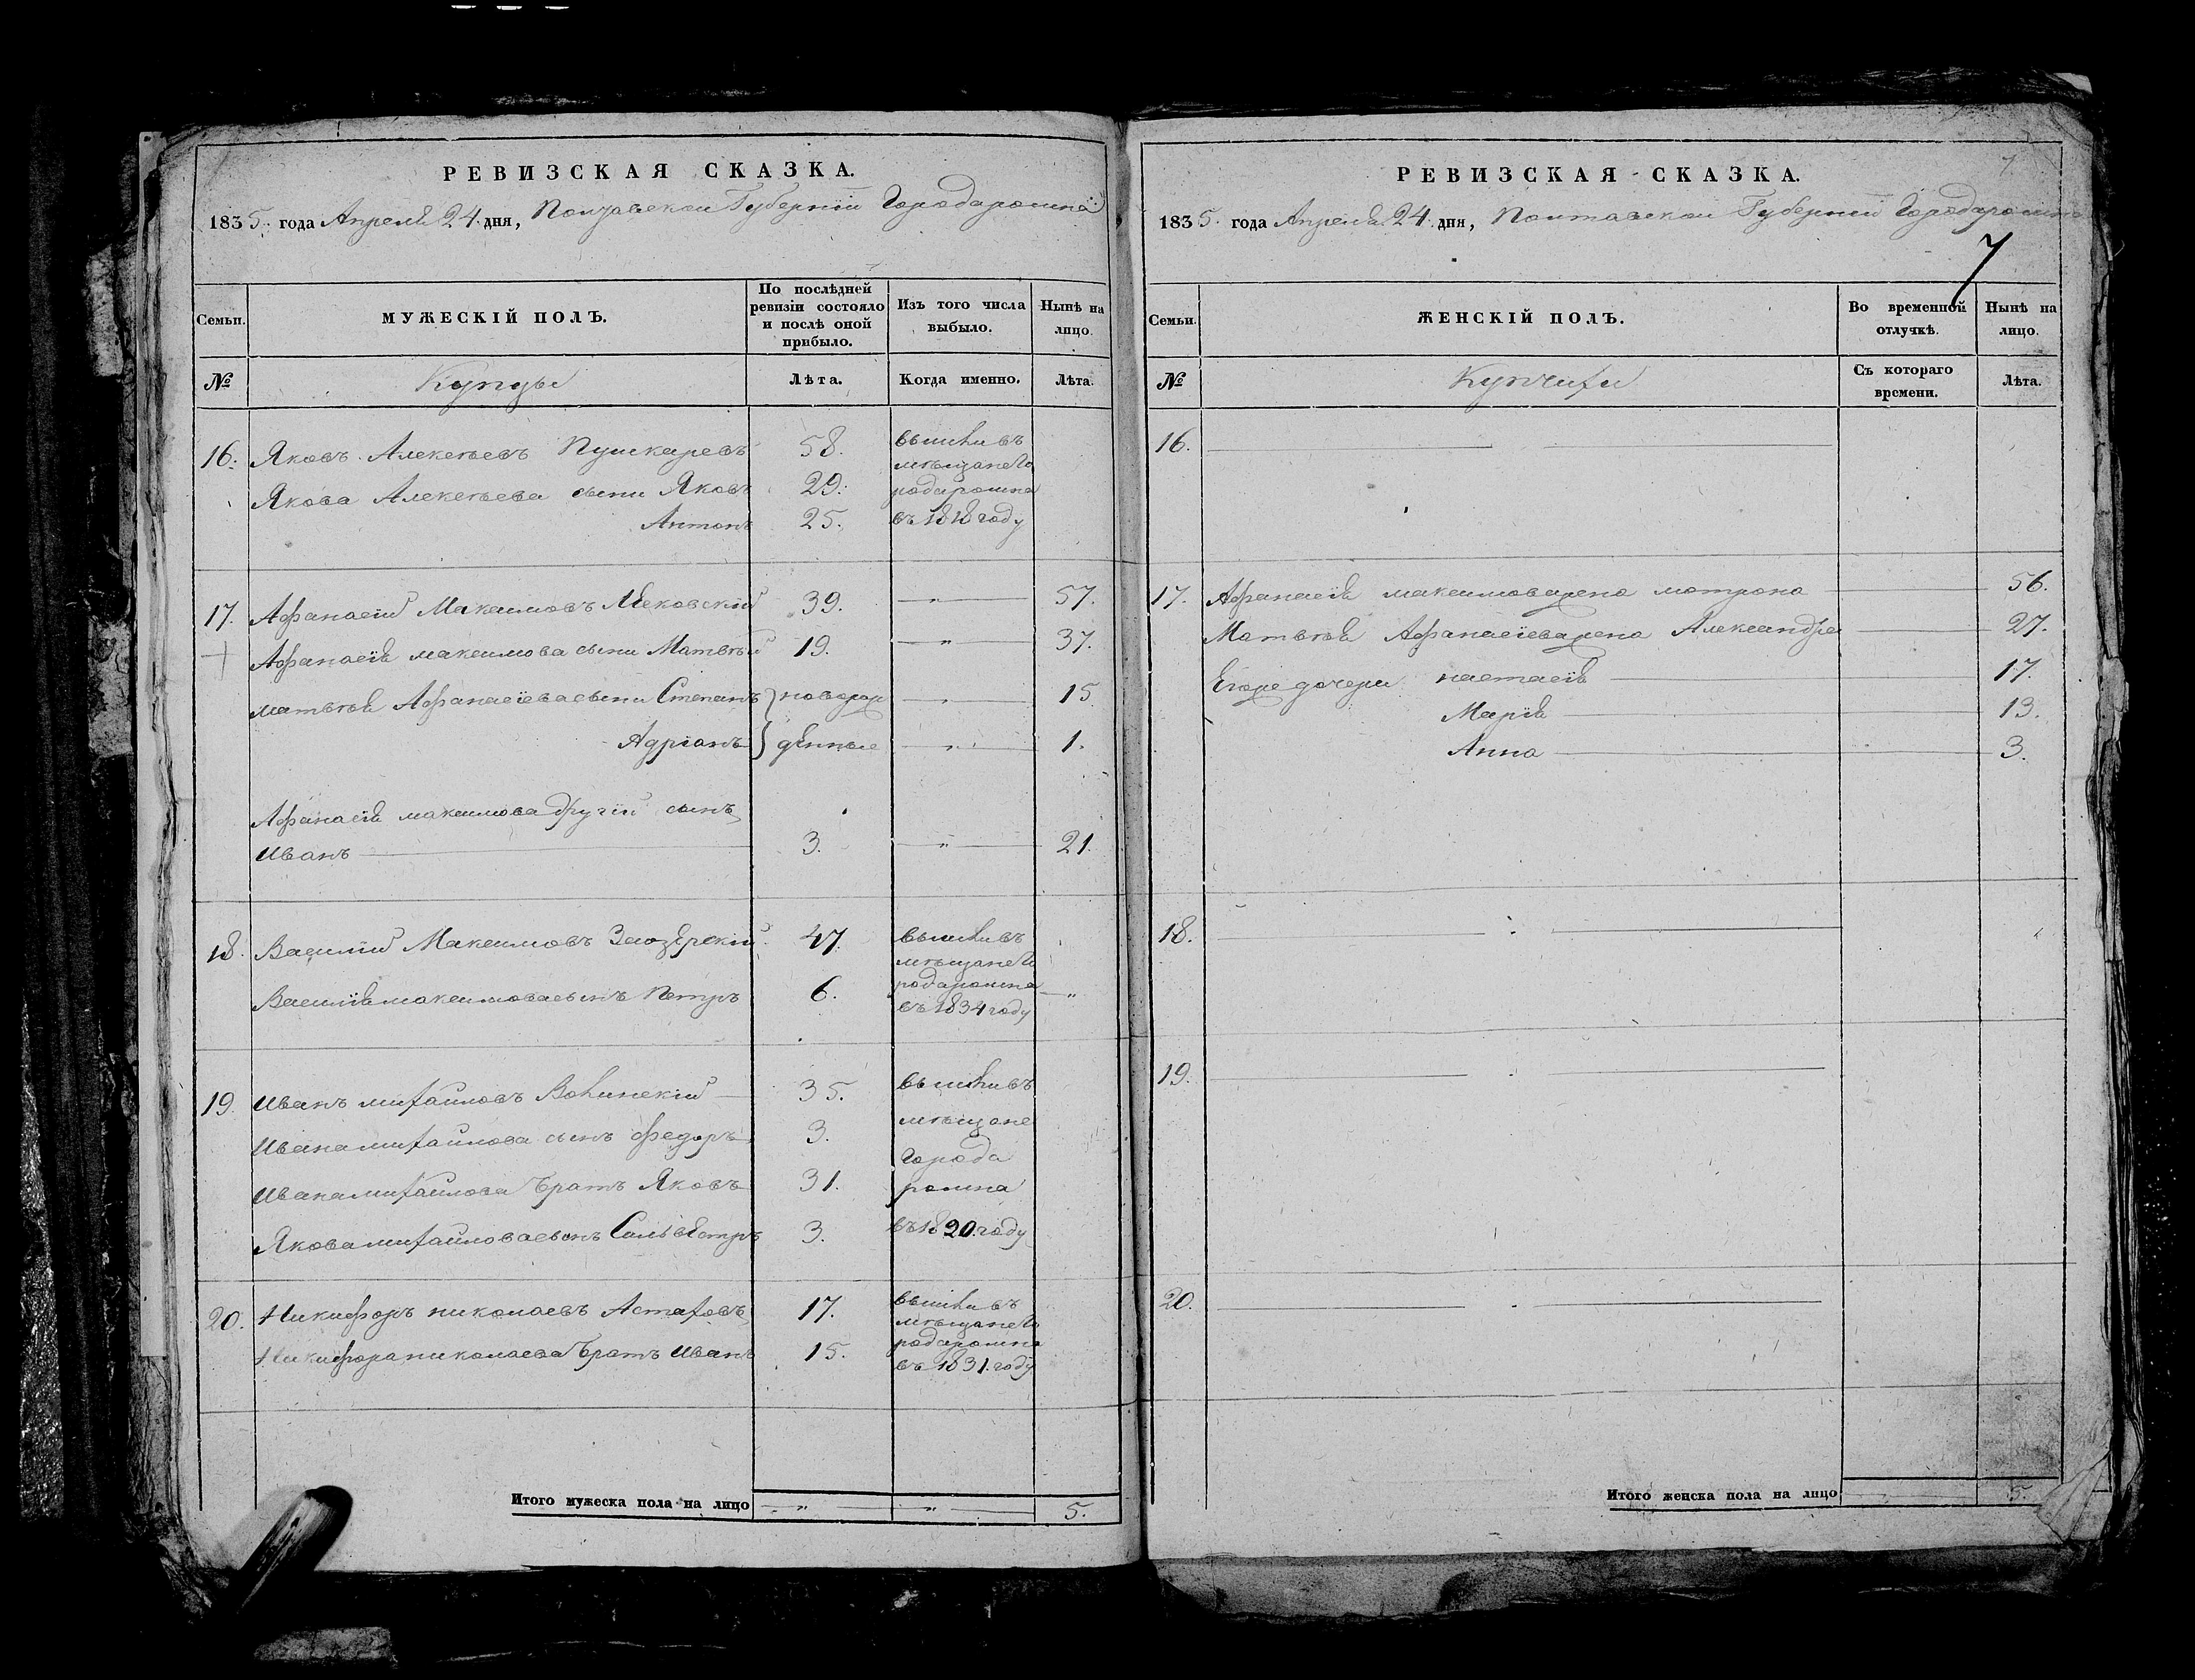 РЕВИЗСКАЯ СКАЗКА.
1835. года Апреля 24. дня, Полтавской Губернїи Города ромна
Семьи. МУЖЕСКІЙ ПОЛЪ. По послѣдней ревизіи состояло и послѣ оной прибыло. Изъ того числа выбыло. Нынѣ на лицо.
№ Купцы Лѣта. Когда именно. Лѣта.
16. Яковъ Алексѣевъ Пушкаревъ 58. вышли въ
мѣщане Го
Якова Алексѣева сыни Яковъ 29. рода ромна
Антонъ 25. въ 1818 году
17. Афанасїй Максимовъ 39. " 57.
Афанасїя максимова сыни Матвѣй 19. " 37.
матвѣя Афанасїева сыни Степанъ новорож " 15
Адрїанъ денные " 1.
Афанасїя максимова другїй сынъ
Иванъ 3. " 21.
18. Василїй Максимовъ 47. вышли въ
мѣщане Го
Василїя максимова сынъ Петръ 6. рода ромна "
въ 1834 году
19. Иванъ михайловъ 35. вышли въ
Ивана михайлова сынъ федоръ 3. мѣщане
Города
Ивана михайлова братъ Яковъ 31. ромна
Якова михайлова сынъ Сильвестръ 3. въ 1820. году
20. Никифоръ николаевъ Астаховъ 17. вышли въ
мѣщане Го
Никифора николаева братъ Иванъ 15. рода ромна
въ 1831. году
Итого мужеска пола на лицо " " 5.
7
РЕВИЗСКАЯ СКАЗКА.
1835. года Апреля 24. дня, Полтавской Губернїи Города ромна
7
Семьи. ЖЕНСКІЙ ПОЛЪ. Во временной отлучкѣ. Нынѣ на лицо.
№ Купчихи Съ котораго времени. Лѣта.
16.
17. Афанасїя максимова жена матрона 56.
Матвѣя Афанасїева жена Александра 27.
Егоже дочери настасїя 17.
Марїя 13.
Анна 3.
18.
19.
20.
Итого женска пола на лицо 5.